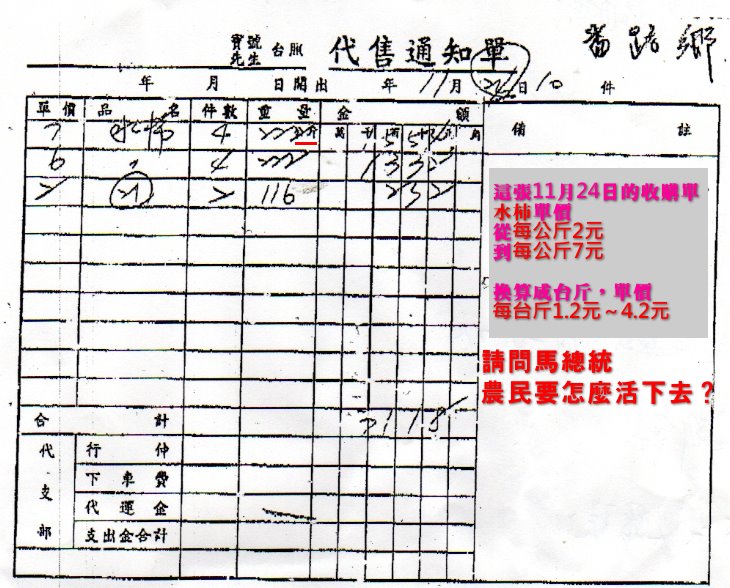 番路鄉
寶號
先生 台照 代售通知單
年 月 日開出 年 11月24日10件
單價 品名 件數 重量 金額 備註
萬 千 百 十 元 角
7 水柿 4 222公斤 1554
6 〃 4 222 1332
2 2 116 232
合計 3118
代支部
行佣
下車費
代運金
支出金合計
這張11月24日的收購單
水柿單價
從每公斤2元
到每公斤7元
換算成台斤，單價
每台斤1.2元～4.2元
請問馬總統
農民要怎麼活下去？